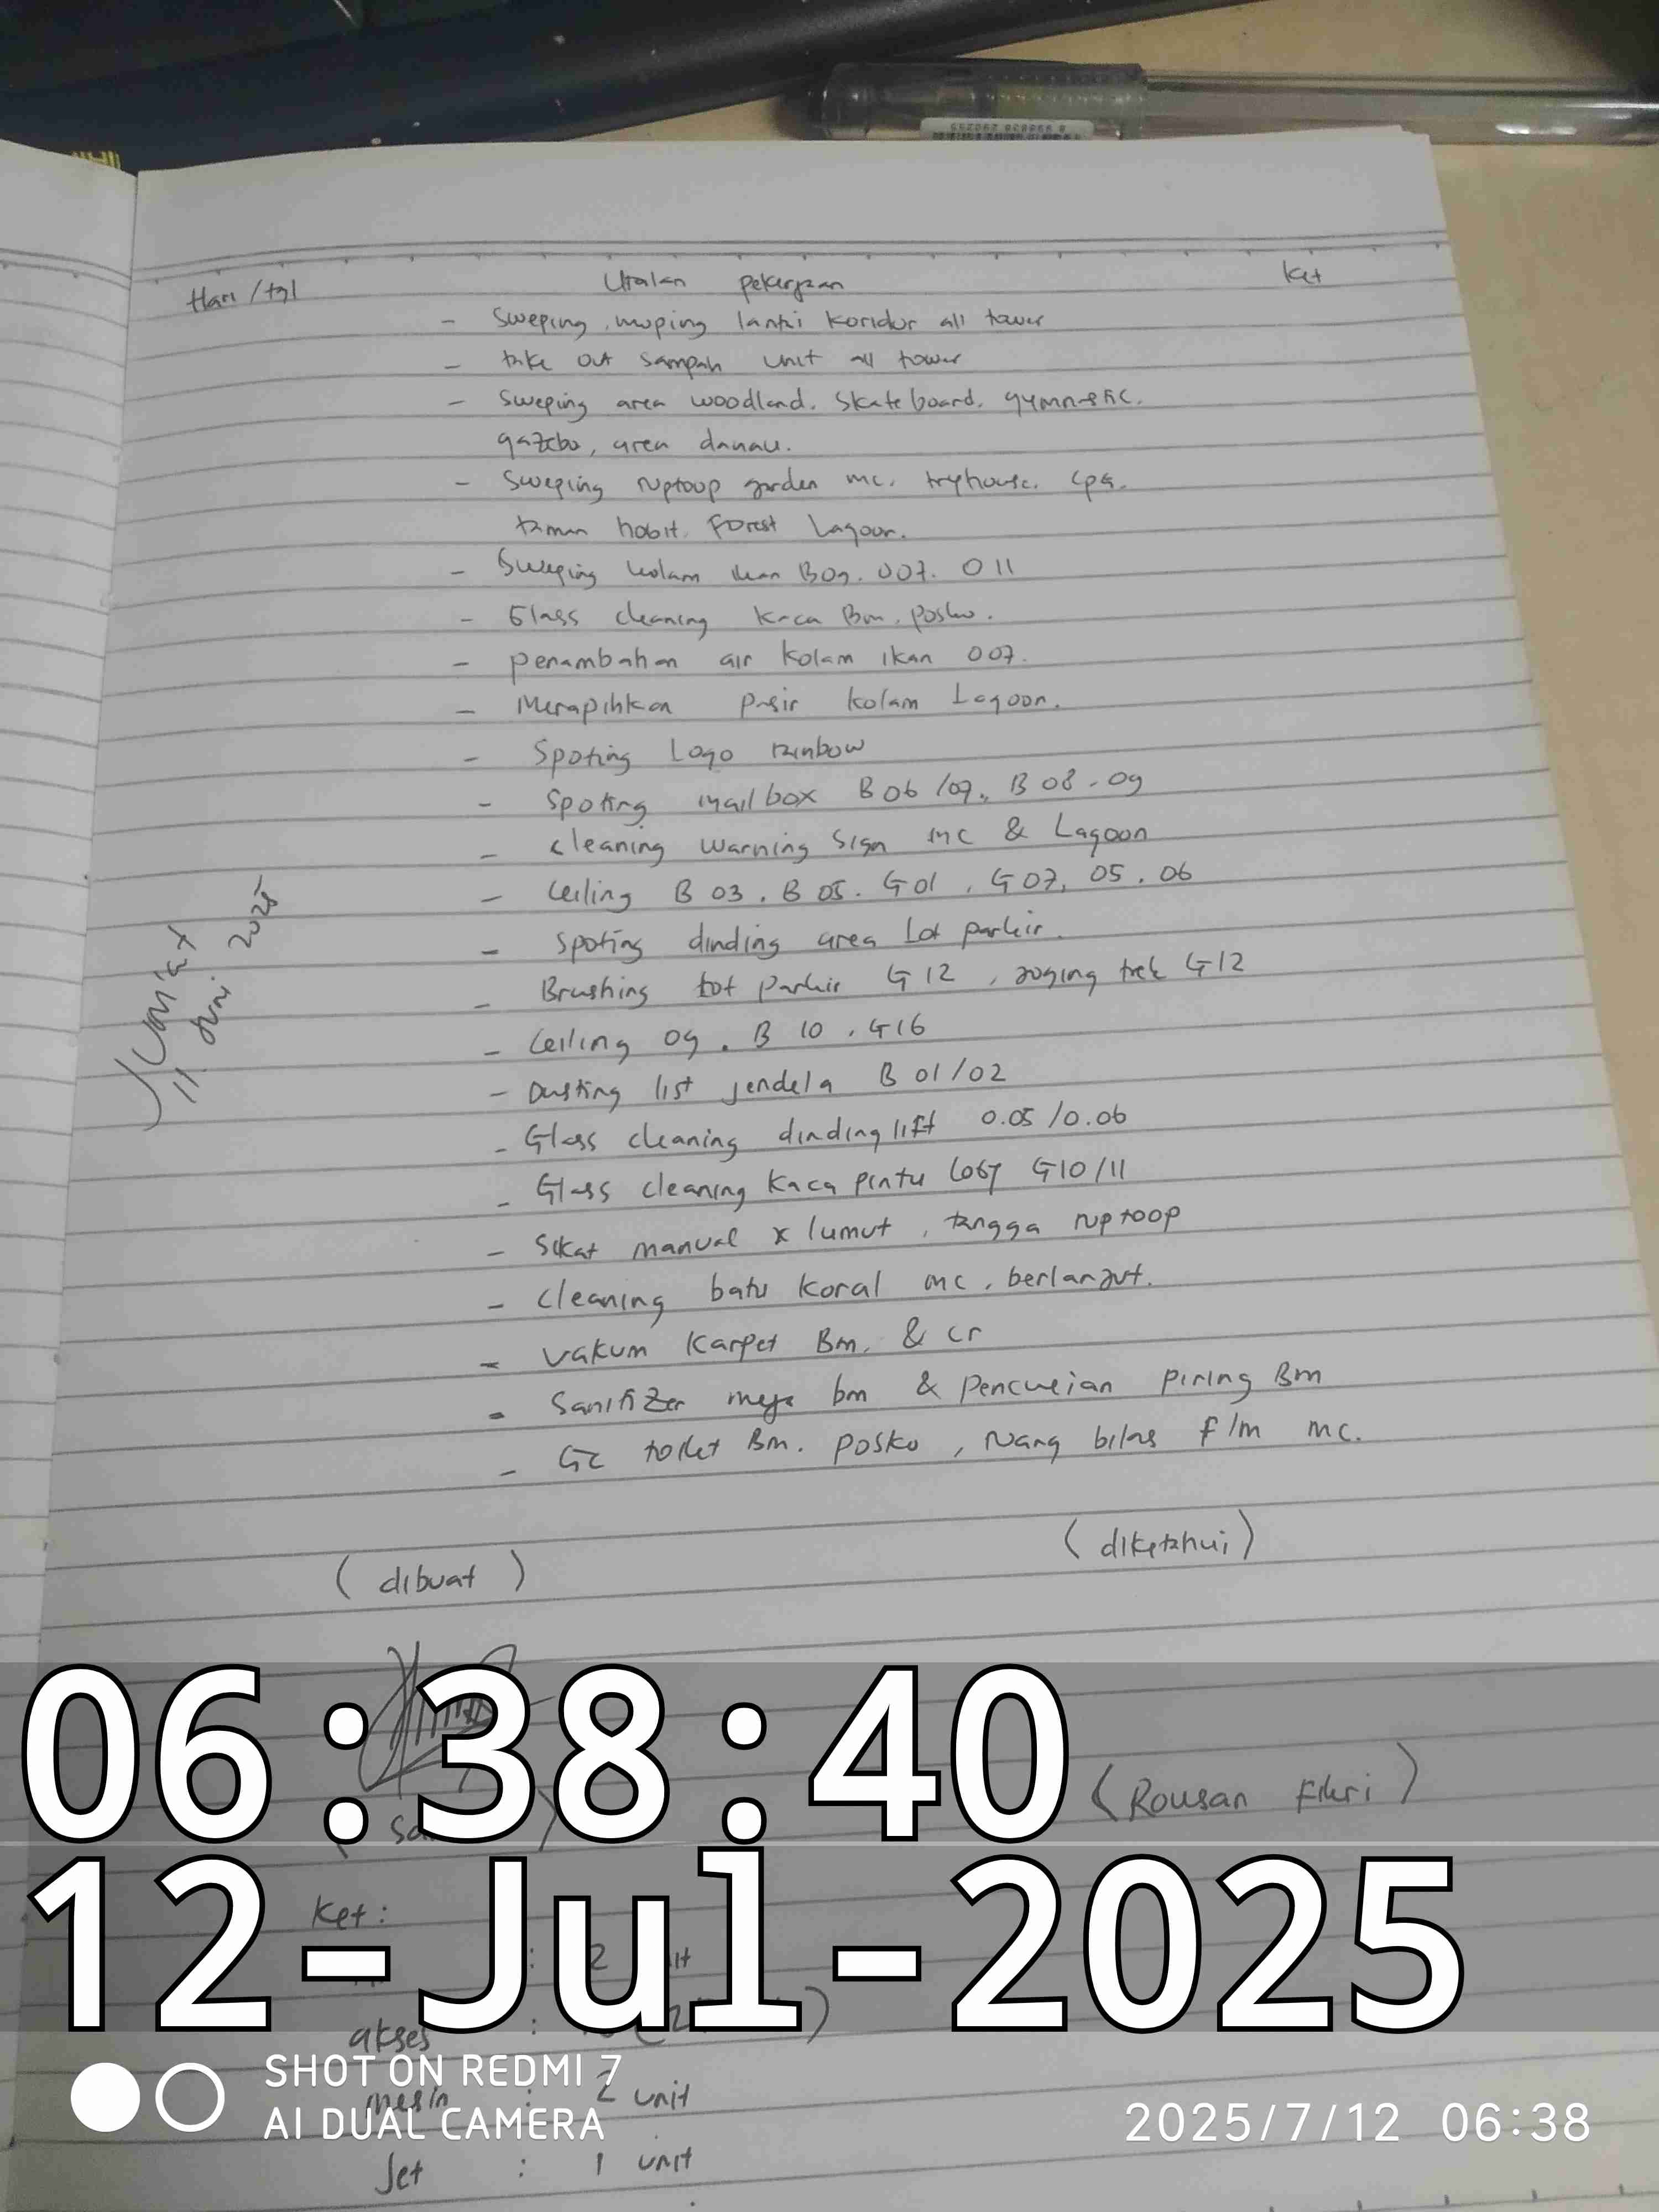 Hari / tgl Uraian pekerjaan Ket
- Sweping, moping lantai koridor all tower
- take out sampah unit all tower
- Sweping area woodland. Skateboard. gymnastic.
gazebo, area danau.
- Sweping ruptoop garden mc.
taman hobit. Forest Lagoon.
- Sweping kolam ikan B09. 007. 011
- Glass cleaning kaca Bm. posko.
- penambahan air kolam ikan 007.
- Merapihkan pasir kolam Lagoon.
- Spoting Logo rainbow
- Spoting mail box B 06 /07. B 08 - 09
- cleaning warning sign mc & Lagoon
- Ceiling B 03 . B 05. G01 . G07. 05 . 06
- Spoting dinding area Lot parkir.
- Brushing Lot parkir G 12 , joging trek G12
- Ceiling 09 . B 10 . G16
- Dusting list jendela B 01/02
- Glass cleaning dinding lift 0.05 /0.06
- Glass cleaning kaca pintu loby G10/11
- Sikat manual x lumut , tangga ruptoop
- cleaning batu koral mc. berlanjut.
- Vakum Karpet Bm. & cr
- Sanitizer meja bm & pencucian piring Bm
- GC toilet Bm. posko , ruang bilas f/m mc.
Jum'at
11 2025
( dibuat ) ( diketahui )
( Rousan Fikri )
06:38:40
12-Jul-2025
Ket :
akses :
mesin : 2 unit
Jet : 1 unit
SHOT ON REDMI 7
AI DUAL CAMERA
2025/7/12 06:38